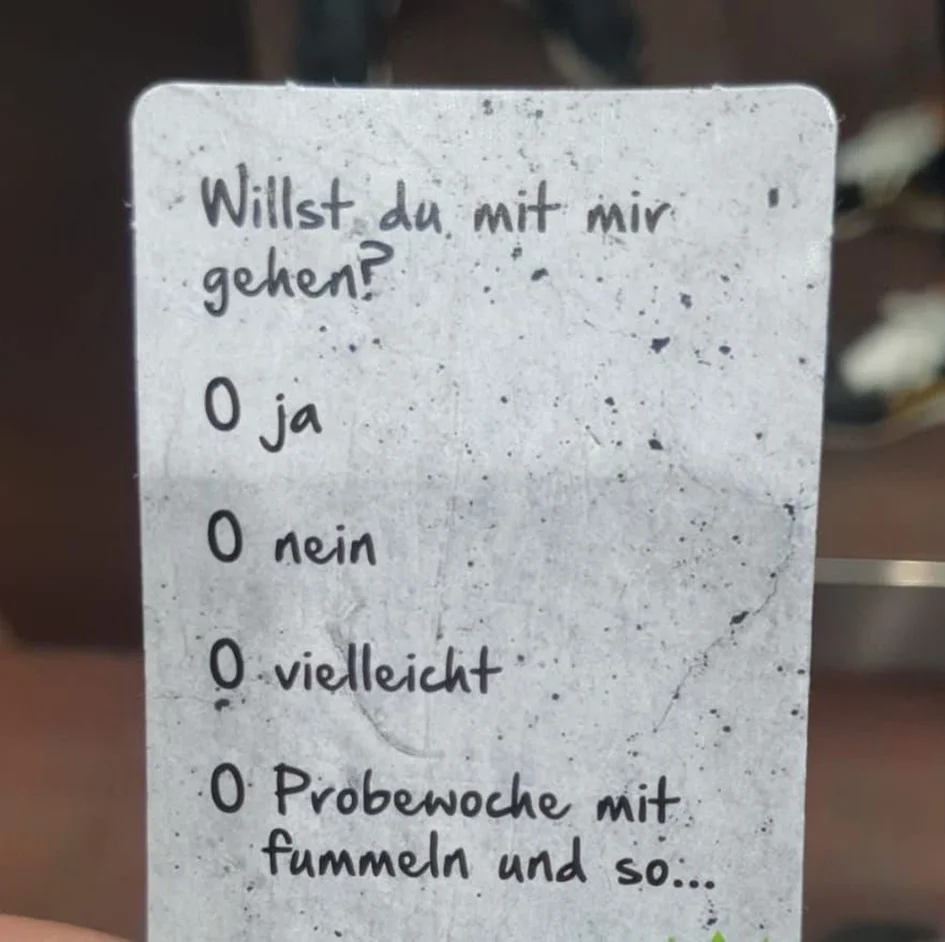 Willst du mit mir
gehen?
O ja
O nein
O vielleicht
O Probewoche mit
fummeln und so...